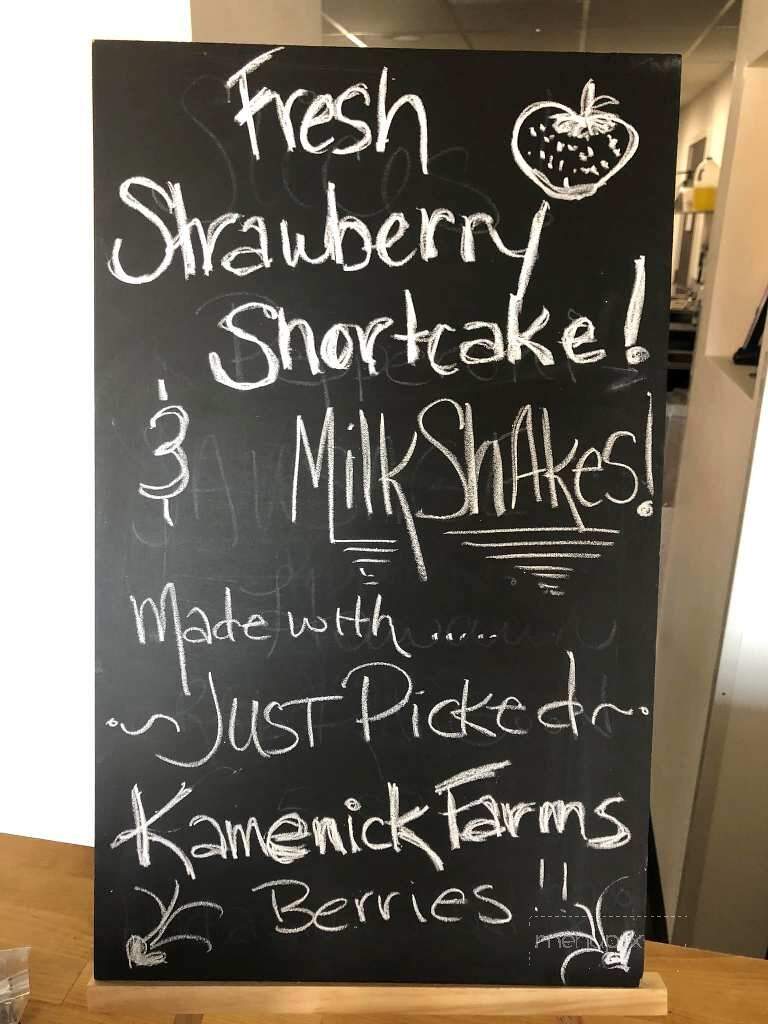 Fresh
Strawberry
Shortcake!
& MilkShAkes!
Made with .....
~JUST Picked~
Kamenick Farms
Berries !!